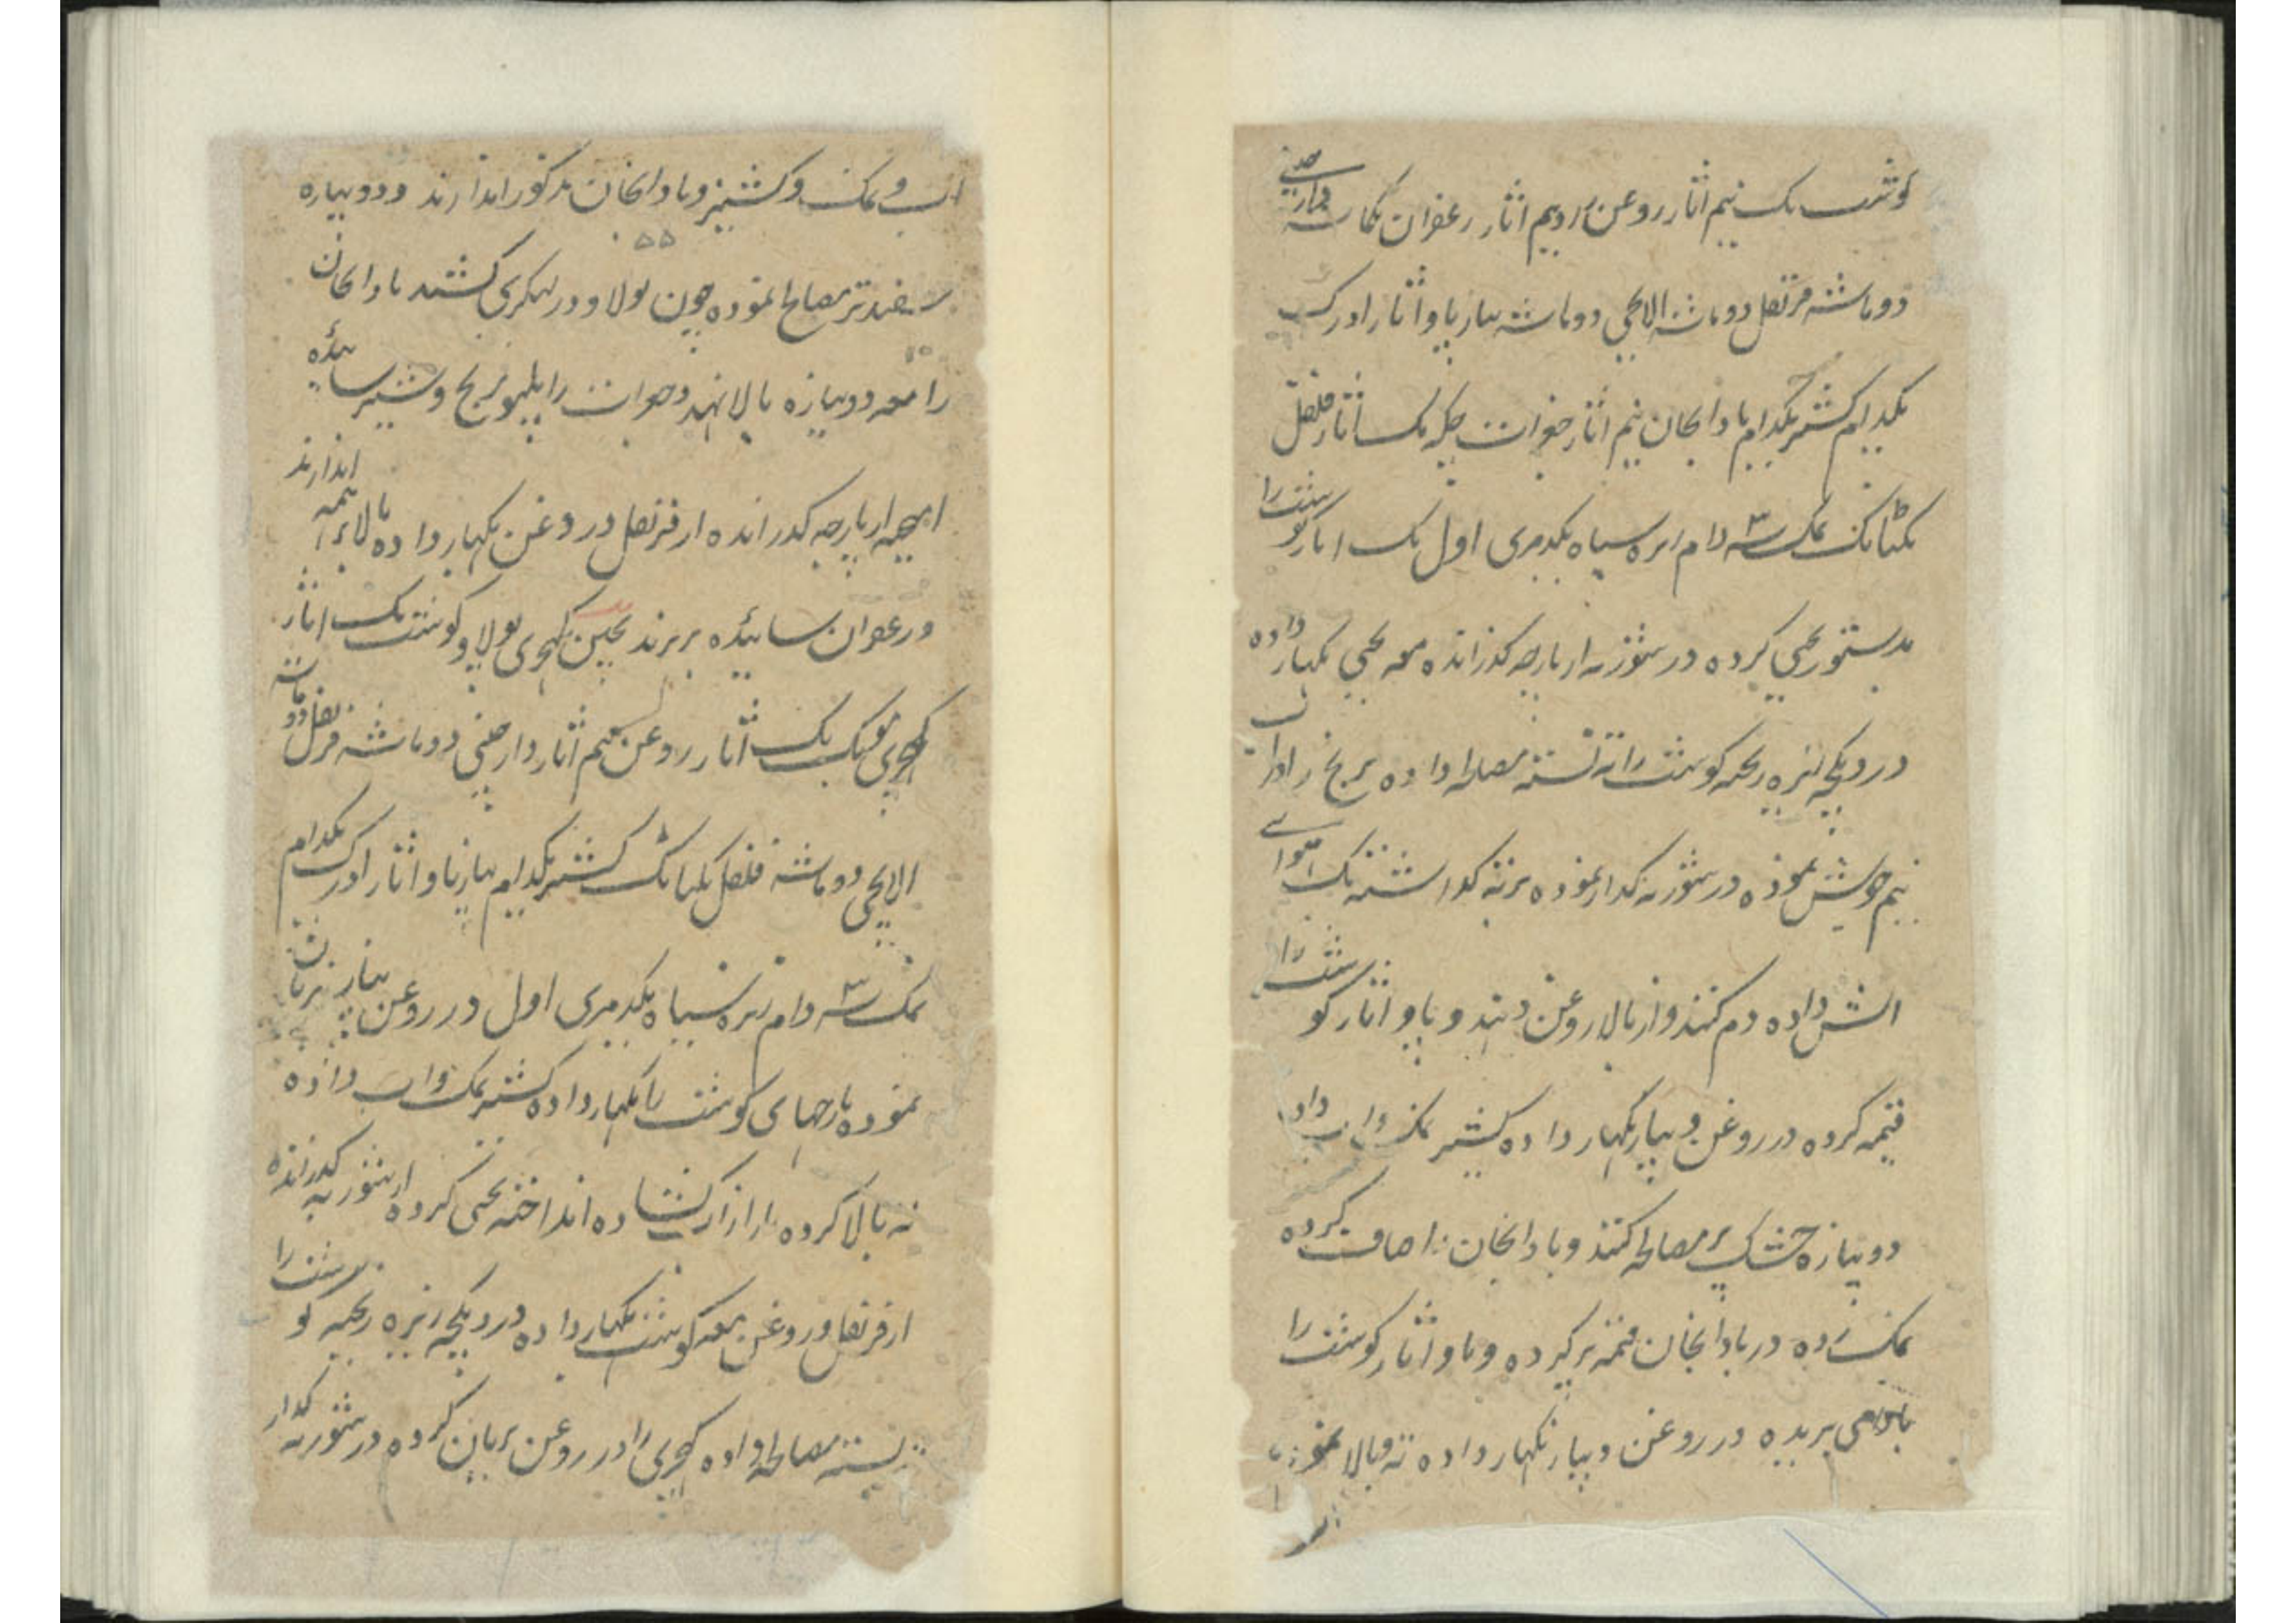 گوشت یک نیم اثار روغن اثار زعفران دارچینی
دوماشه قرنفل دوماشه الایچی دوماشه پیاز پاو اثار ادرک
یکدام کشنیز یکدام بادانجان نیم اثار جغرات چکه یک اثار فلفل
یکتانک نمک سه دام زیره سیاه یکدمری اول یک اثار گوشت را
بدستور یخنی کرده در شوربه از پارچه گذرانده معه یخنی بگهار داده
در دیگچه زیره ریخته گوشت را ته نشسته مصالحه داده برنج را در آب
نیم جوش نموده در شوربه گداز نموده برته گذاشته یک
آتش داده دم کنند و از بالا روغن دهند و پاو اثار گوشت را
قیمه کرده در روغن و پیاز بگهار داده کشنیز نمک و آب داده
دوپیازه خشک پر مصالحه کنند و بادانجان را صاف کرده
نمک زده در بادانجان قیمه پر کرده و پاو اثار گوشت را
بریده در روغن و پیاز بگهار داده ته و بالا نموده
آب و نمک و کشنیز و بادانجان مذکور اندازند و دوپیازه
سفید تر مصالح نموده چون پولاو در کشند بادانجان
را معه دوپیازه بالا نهند و جغرات را برنج و شیر سائیده
اندازند
از پارچه گذرانده از قرنفل در روغن بگهار داده بالای همه
و زعفران سائیده بریزند یخنی کهچری پولاو گوشت یک اثار
کهچری مونگ یک اثار روغن نیم اثار دارچینی دوماشه قرنفل دوماشه
الایچی دوماشه فلفل یکتانک کشنیز یکدام پیاز پاو اثار ادرک یکدام
نمک سه دام زیره سیاه یکدمری اول در روغن پیاز بریان
نموده پارچهای گوشت را بگهار داده کشنیز نمک و آب داده
ته بالا کرده کشاده انداخته یخنی کرده از شوربه گذرانده
از قرنفل و روغن معه گوشت بگهار داده در دیگچه زیره ریخته گوشت را
ته بسته مصالحه داده کهچری را در روغن بریان کرده در شوربه گداز